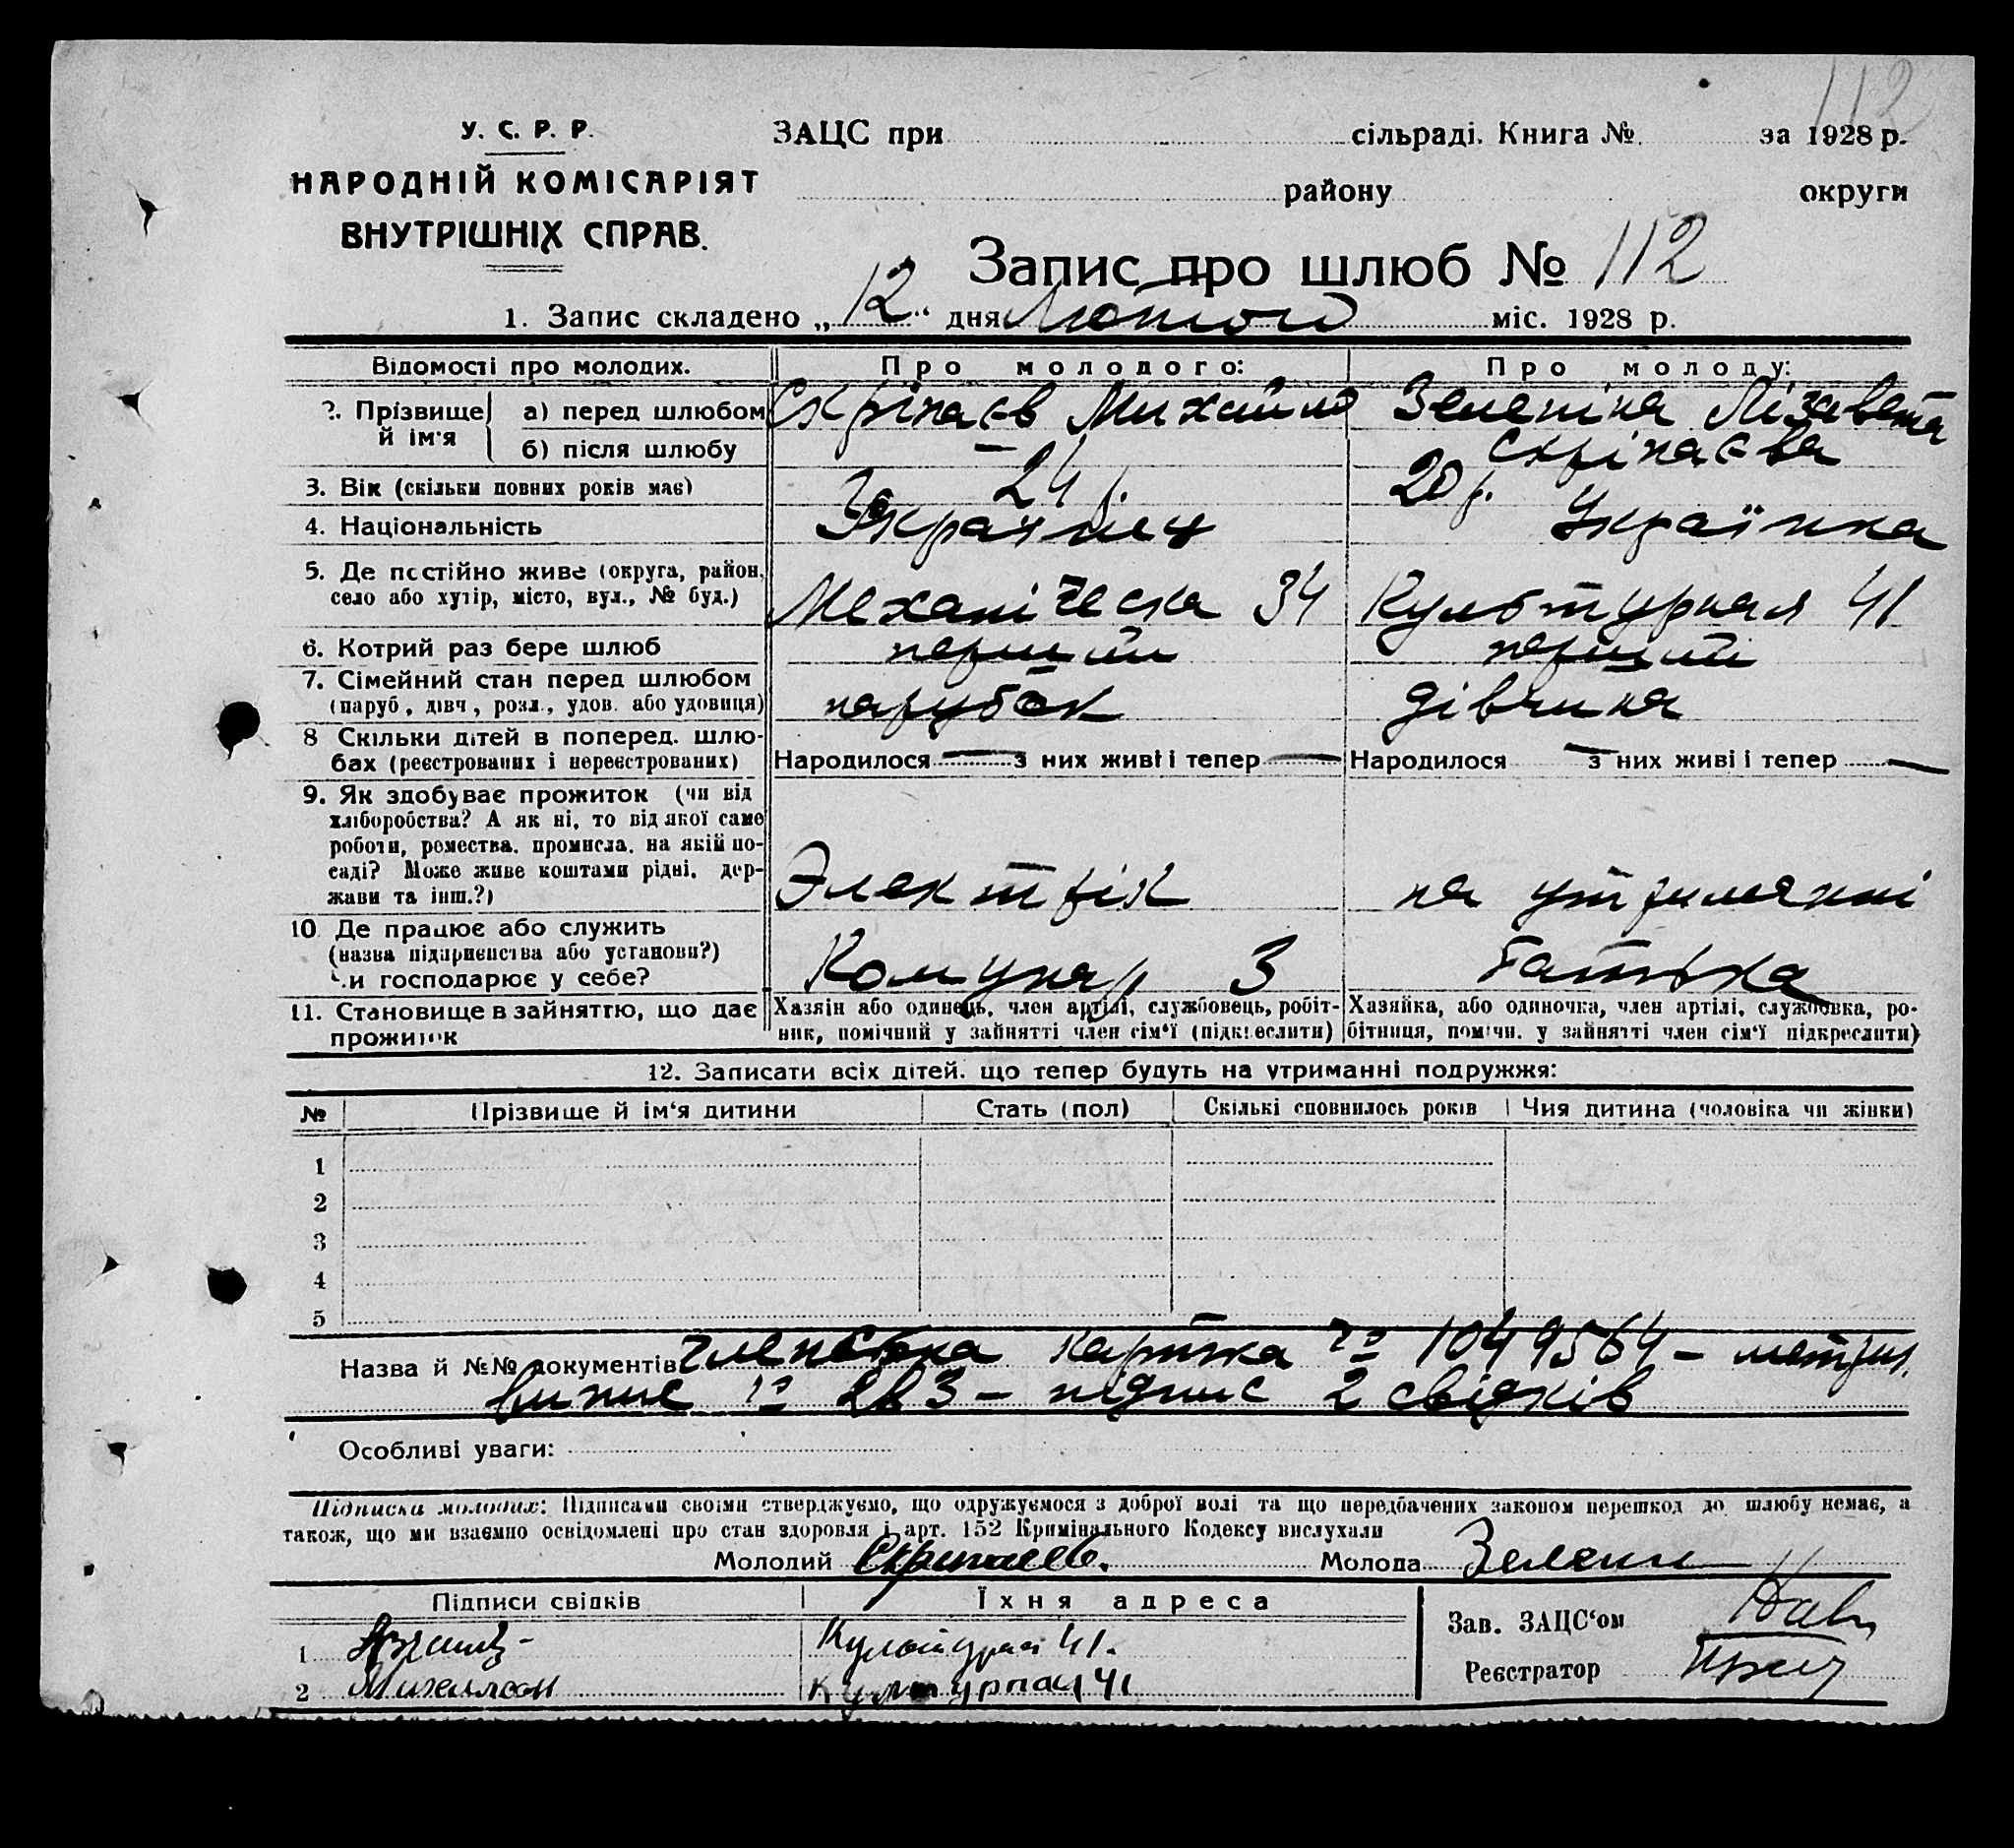 112
У. С. Р. Р.
НАРОДНІЙ КОМІСАРІЯТ
ВНУТРІШНІХ СПРАВ.
ЗАЦС при сільраді. Книга № за 1928 р.
району округи
Запис про шлюб № 112
1. Запис складено „12“ дня Лютого міс. 1928 р.
Відомості про молодих. Про молодого: Про молоду:
2. Прізвище й ім'я
а) перед шлюбом Скрінаєв Михайло Зеленіна Лізавета
б) після шлюбу — Скрінаєва
3. Вік (скільки повних років має) 24 р. 20 р.
4. Національність Українец Українка
5. Де постійно живе (округа, район,
село або хутір, місто, вул., № буд.) Механіческа 34 Культурная 41
6. Котрий раз бере шлюб перший перший
7. Сімейний стан перед шлюбом
(паруб., дівч., розл., удов. або удовиця) парубок дівчина
8 Скільки дітей в поперед. шлю-
бах (реєстрованих і нереєстрованих) Народилося — з них живі і тепер — Народилося — з них живі і тепер —
9. Як здобуває прожиток (чи від
хліборобства? А як ні, то від якої саме
роботи, ремества, промисла, на якій по-
саді? Може живе коштами рідні, дер-
жави та інш.?) Электрік на утриманні
10. Де працює або служить
(назва підприємства або установи?)
Чи господарює у себе? Комунар 3 батька
11. Становище в зайняттю, що дає
прожиток
Хазяін або одинець, член артілі, службовець, робіт-
ник, помічний у зайнятті член сім'ї (підкреслити)
Хазяйка, або одиночка, член артілі, службовка, ро-
бітниця, помічн. у зайнятті член сім'ї підкреслити)
12. Записати всіх дітей, що тепер будуть на утриманні подружжя:
№ Прізвище й ім'я дитини Стать (пол) Скількі сповнилось років Чия дитина (чоловіка чи жінки)
1
2
3
4
5
Назва й №№ документів членська картка № 1049564 – метрич.
випис № 283 – підпис 2 свідків
Особливі уваги:
Підписка молодих: Підписами своїми стверджуємо, що одружуємося з доброї волі та що передбачених законом перешкод до шлюбу немає, а
також, що ми взаємно освідомлені про стан здоровля і арт. 152 Кримінального Кодексу вислухали
Молодий Скрипаев. Молода Зеленин
Підписи свідків Їхня адреса
1 Культурная 41.
2 Михельсон Культурная 41
Зав. ЗАЦС'ом
Реєстратор